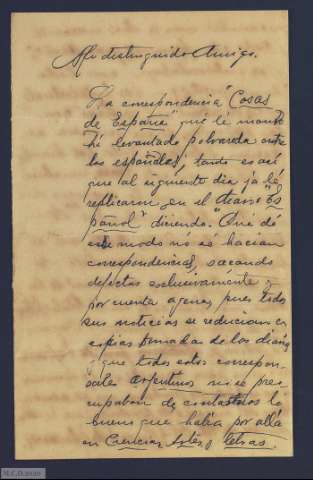 Mi distinguido Amigo.
La correspondencia "Cosas
de España" que le mandó
há levantado polvareda entre
los españoles; tanto es así
que al siguiente dia ya lé
replicaron en el diario "Es
pañol" diciendo. "Qué dé
ese modo nó sé hacian
correspondencias, sacando
defectos esclusivamente y
por cuenta agena, pues todas
sus noticias se reducian en
copias tomadas de los diarios
y que todos estos correspon-
sales argentinos no se preo
cupaban de contastaros lo
bueno que habia por allá
en Ciencias, Artes y letras.